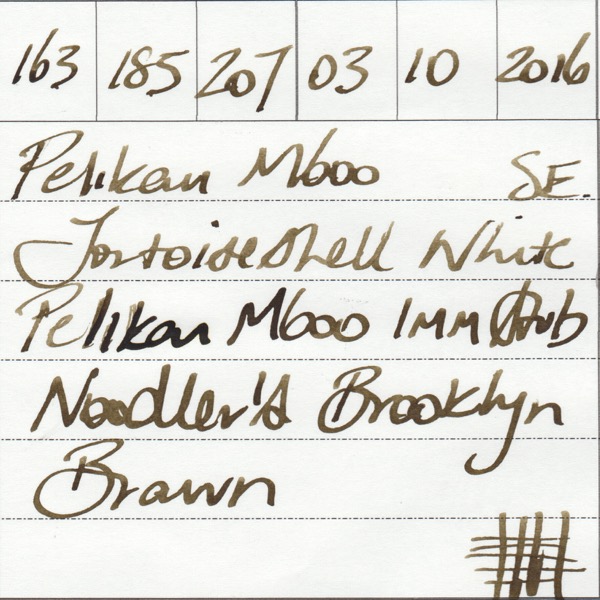 163 185 207 03 10 2016
Pelikan M600 SE.
Tortoiseshell White
Pelikan M600 1MM Stub
Noodler's Brooklyn
Brown